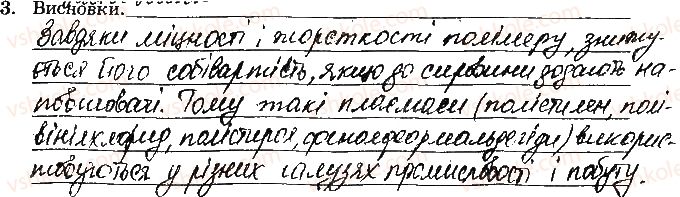 3. Висновки.
Завдяки міцності і жорсткості полімеру, знижу-
ється його собівартість, якщо до сировини додають на-
повнювачі. Тому такі пластмаси (полієтилен, полі-
вінілхлорид, полістирол, фенолформальдегіди) викорис-
товуються у різних галузях промисловості і побуту.